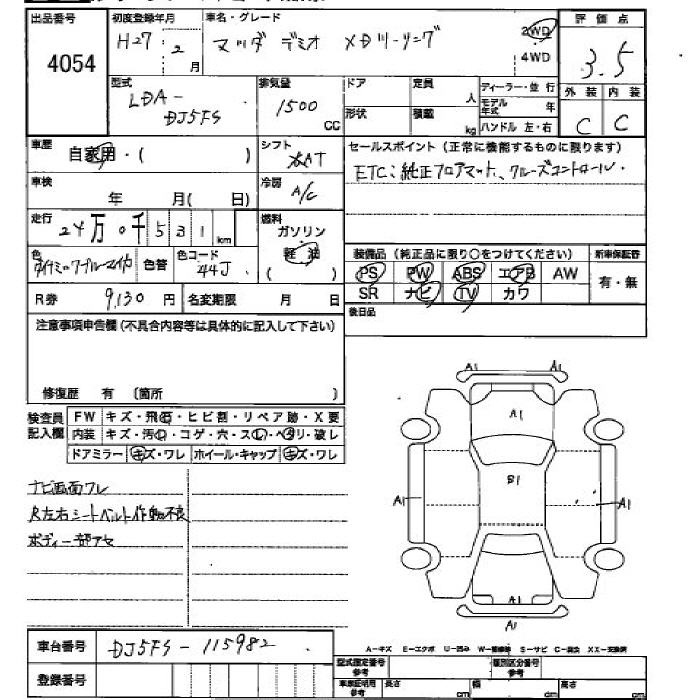 出品番号 初度登録年月 車名・グレード 評価点
4054 H27 2月 マツダ デミオ XDツーリング 2WD 3.5
4WD
型式 排気量 ドア 定員 人 ディーラー・並行 外装 内装
LDA- 1500 モデル年式 年 C C
DJ5FS CC 形状 積載 kg ハンドル 左・右
車歴 自家用・( ) シフト AT セールスポイント(正常に機能するものに限ります)
ETC;純正フロアマット、クルーズコントロール.
車検 年 月( 日) 冷房 A/C
走行 24万0千531km 燃料 ガソリン
軽油
( )
色 ダイナミックブルーマイカ 色替 色コード 44J 装備品(純正品に限り○をつけてください) 新車保証書
PS PW ABS エアB AW 有・無
R券 9,130円 名変期限 月 日 SR ナビ TV カワ
注意事項申告欄(不具合内容等は具体的に記入して下さい) 後日品
修復歴 有 (箇所 )
検査員記入欄 FW キズ・飛石・ヒビ割・リペア跡・X要
内装 キズ・汚れ・コゲ・穴・スレ・ベタリ・破レ
ドアミラー キズ・ワレ ホイール・キャップ キズ・ワレ
A1 A1
A1
B1
A1 A1
A1
A1
ナビ画面ワレ
R左右シートベルト作動不良
ボディ一部アセ
車台番号 DJ5FS-115982
A-キズ E-エクボ U-凹み W-補修跡 S-サビ C-腐食 XX-交換済
登録番号 型式指定番号参考 類別区分番号参考
車庫証明用参考 長さ cm 幅 cm 高さ cm